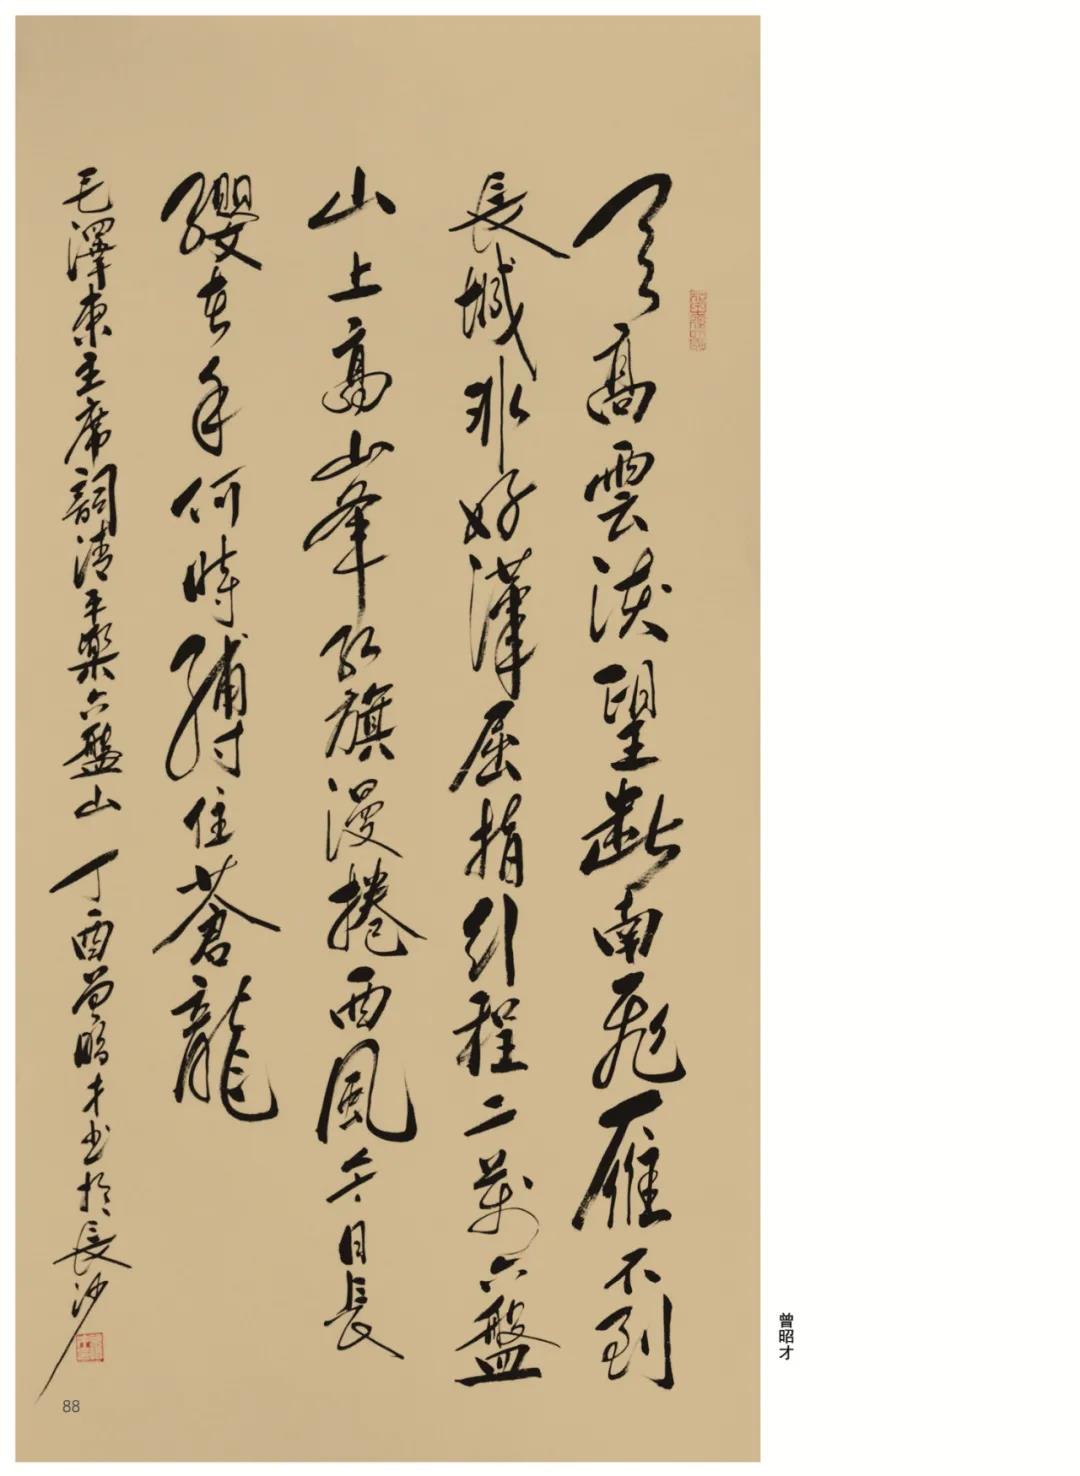 天高雲淡望斷南飛雁不到
長城非好漢屈指行程二萬六盤
山上高峯紅旗漫捲西風今日長
纓在手何時縛住蒼龍
毛澤東主席詞清平樂六盤山 丁酉曾昭才书於長沙
曾昭才
88